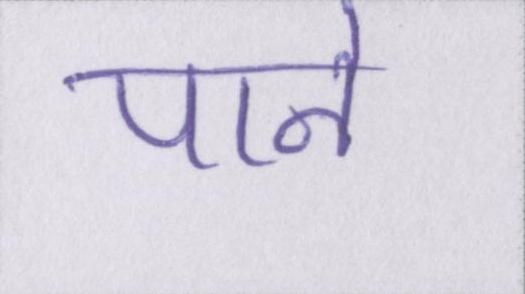 पाने